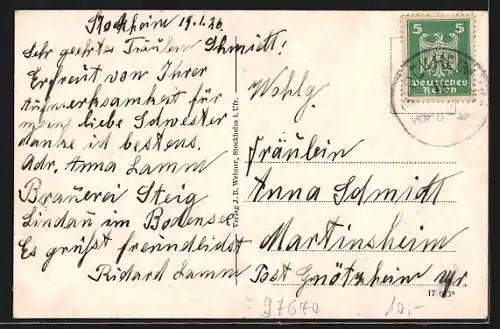 Stockheim 19.1.26
Sehr geehrtes Fräulein Schmidt!
Erfreut von Ihrer
Aufmerksamkeit für
meine liebe Schwester
danke ich bestens.
Adr. Anna Lamm
Brauerei Steig
Lindau im Bodensee
Es grüßt freundlichst
Richard Lamm
Verlag J. B. Wehner, Stockheim i. Ufr.
5 5
Deutsches
Reich
Wohlg.
Fräulein
Anna Schmidt
Martinsheim
Post Gnötzheim
97640
10,-